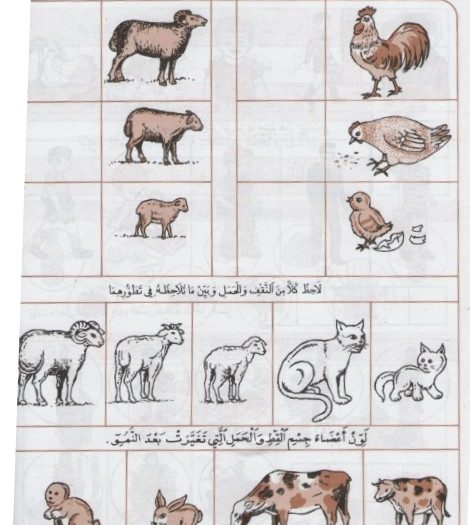 لَاحِظْ كُلًّا مِنَ ٱلنَّقَفِ وَٱلْحَمَلِ وَبَيِّنْ مَا تُلَاحِظُهُ فِي تَطَوُّرِهِمَا
لَوِّنْ أَعْضَاءَ جِسْمِ ٱلْقِطِّ وَٱلْحَمَلِ ٱلَّتِي تَغَيَّرَتْ بَعْدَ ٱلنُّمُوِّ.